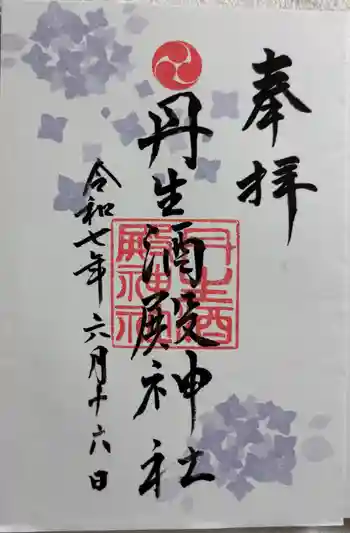 奉拝
丹生酒殿神社
丹生酒
殿神社
令和七年六月十六日